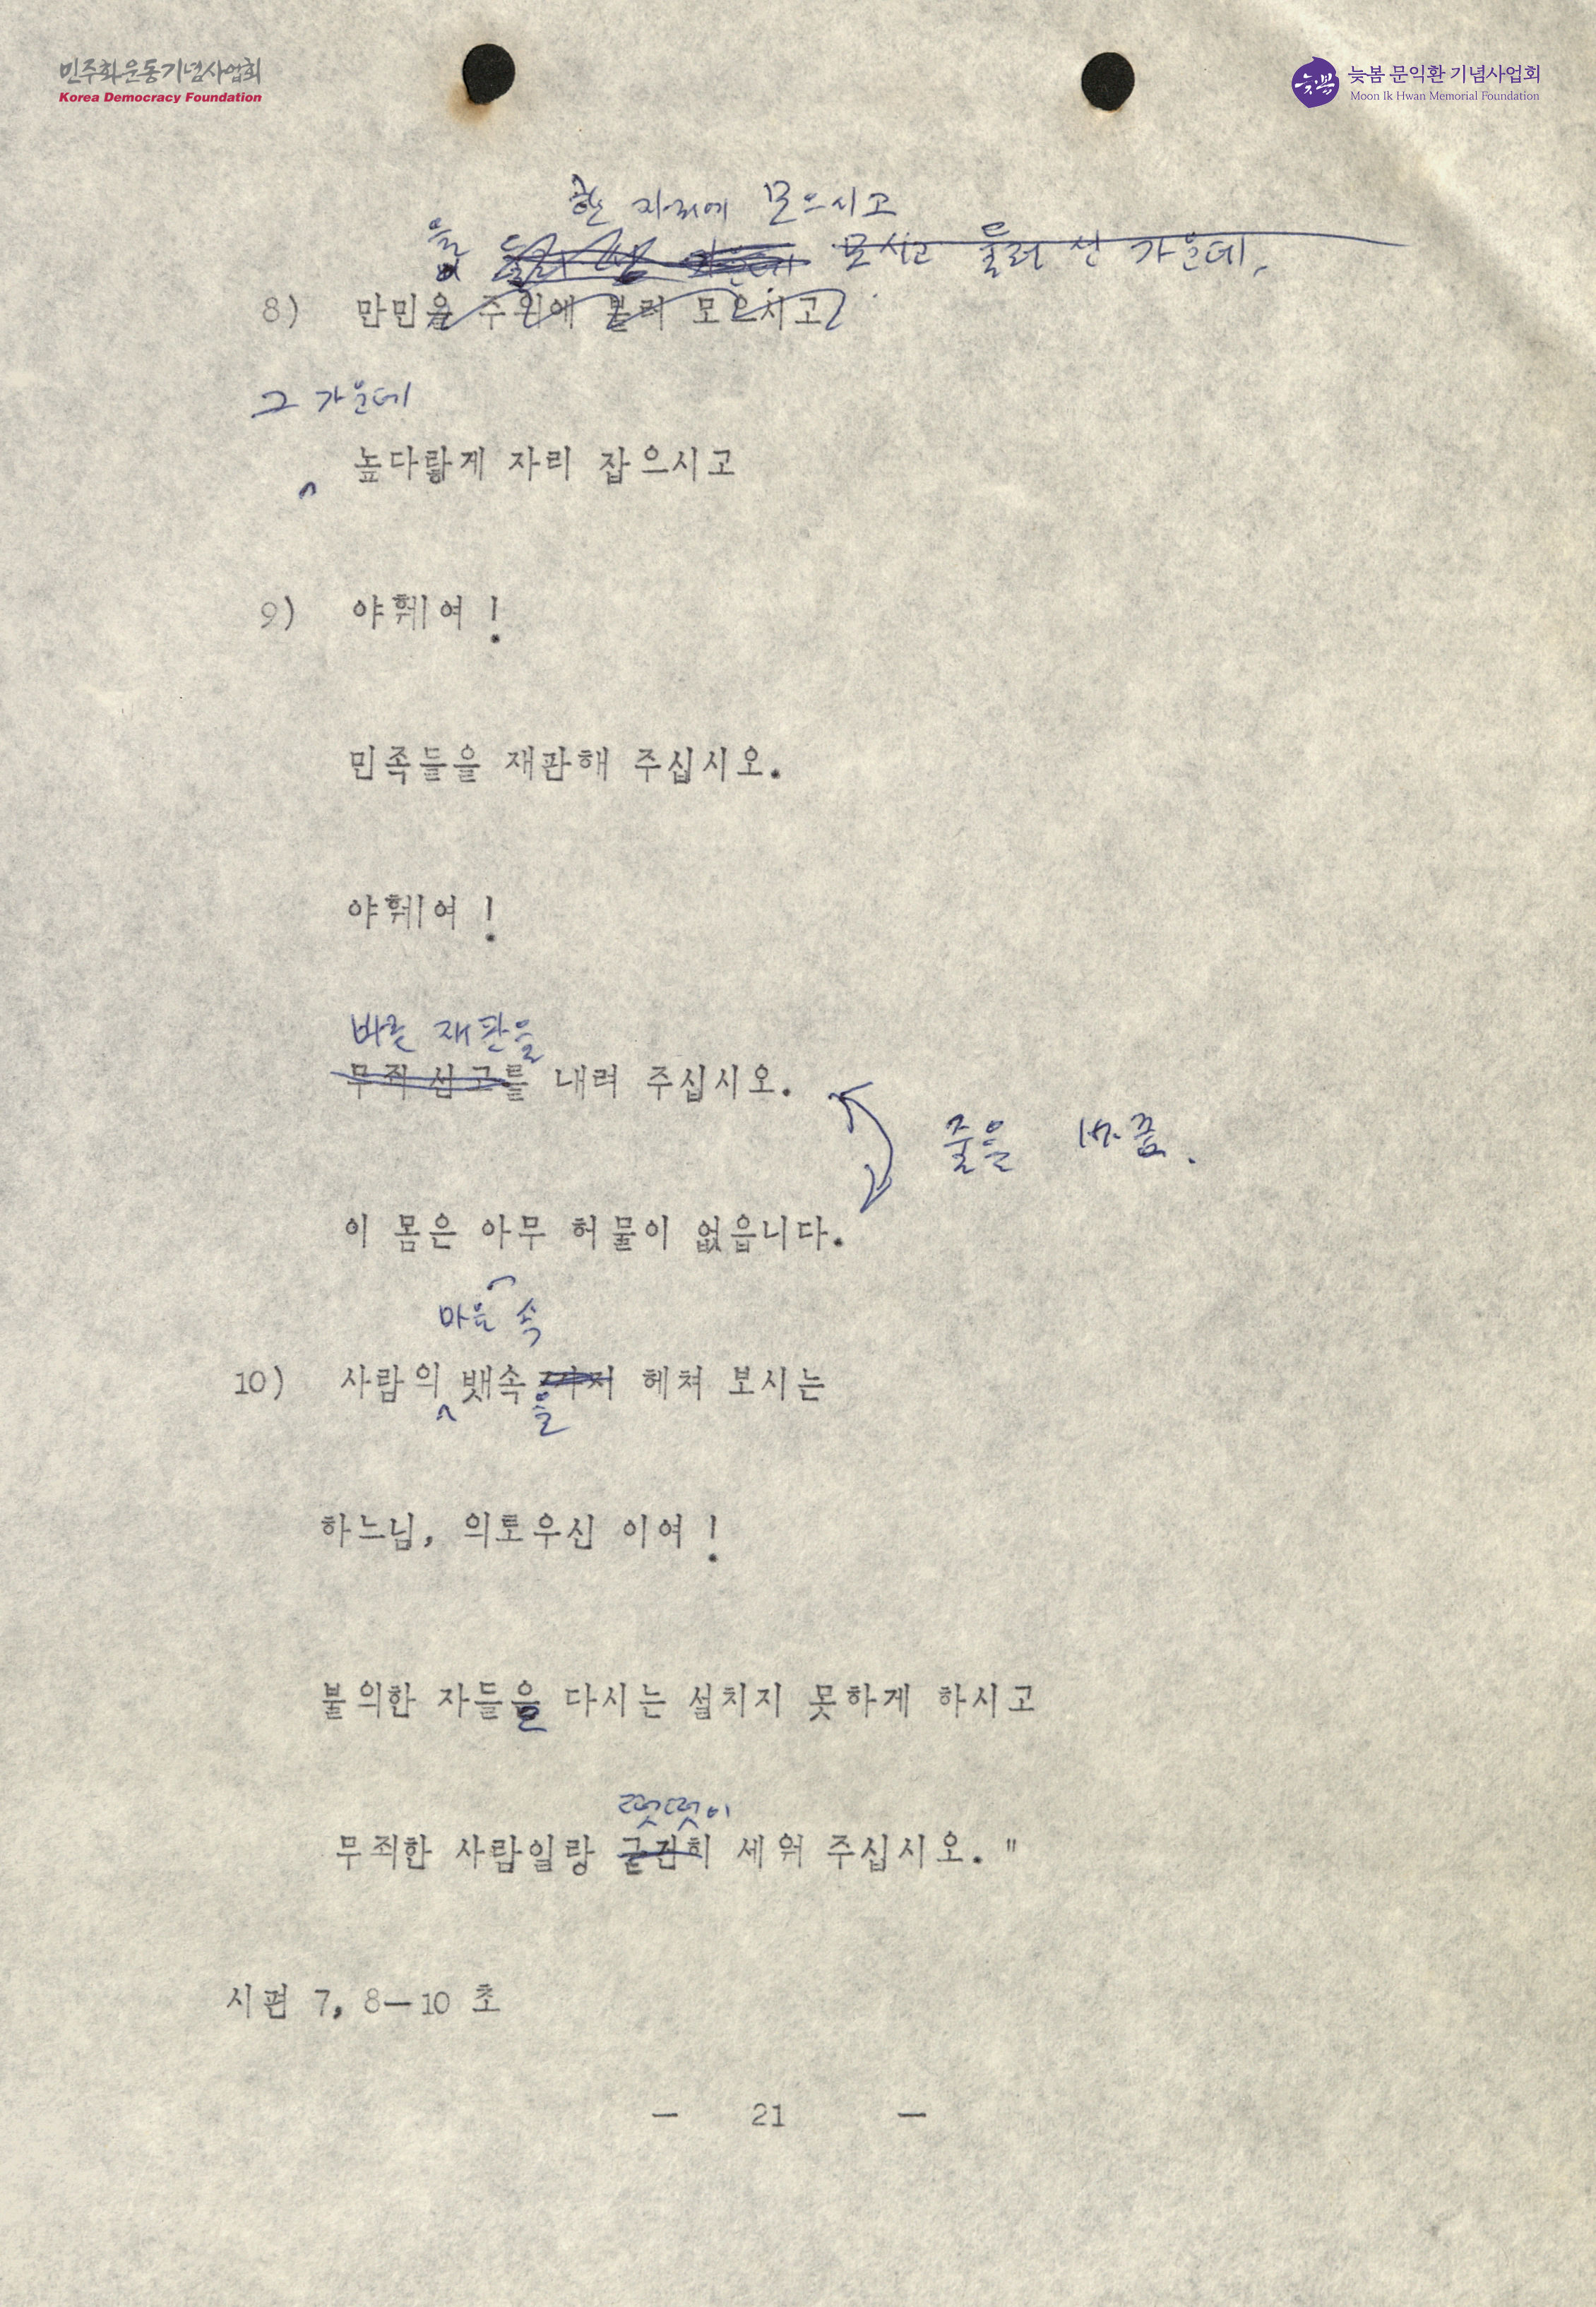 민주화운동기념사업회
Korea Democracy Foundation
늦봄
늦봄 문익환 기념사업회
Moon Ik Hwan Memorial Foundation
한 자리에 모으시고
을 둘러 모시고 둘러 선 가운데,
8) 만민을 주위에 불러 모으시고
그 가운데
높다랗게 자리 잡으시고
9) 야훼여!
민족들을 재판해 주십시오.
야훼여!
바른 재판을
무죄 선고를 내려 주십시오.
줄을 바꿈.
이 몸은 아무 허물이 없읍니다.
마음 속
10) 사람의 뱃속까지 헤쳐 보시는
을
하느님, 의로우신 이여!
불의한 자들을 다시는 설치지 못하게 하시고
떳떳이
무죄한 사람일랑 굳건히 세워 주십시오."
시편 7, 8—10 초
— 21 —